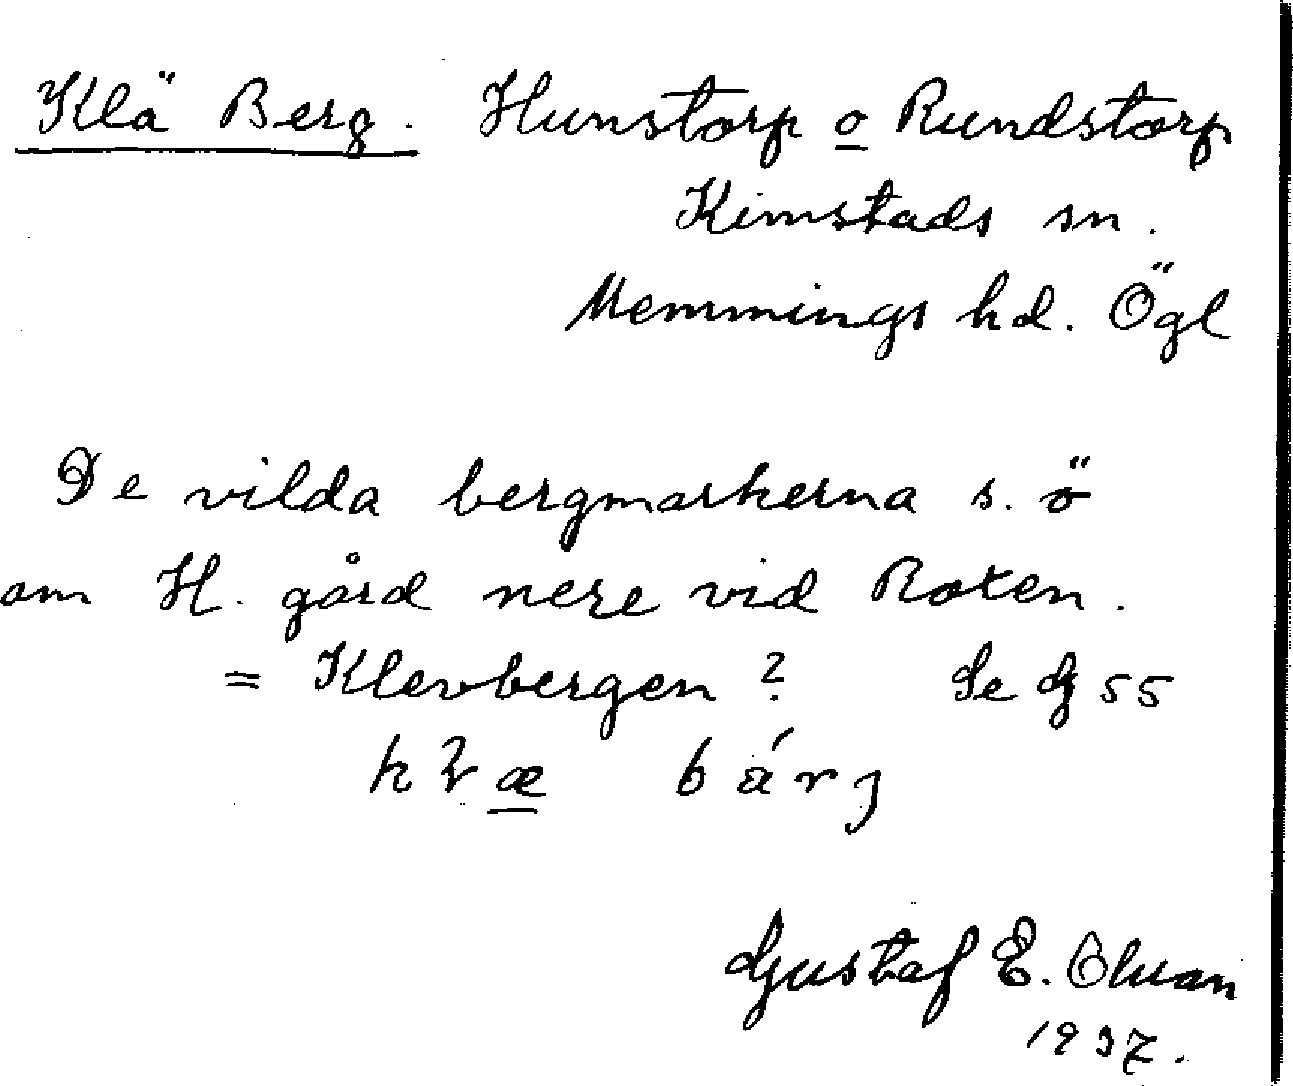 Klä Berg. Hunstorp o Rundstorp
Kimstads sn.
Memmings hd. Ögl
De vilda bergmarkerna s. ö
om H. gård nere vid Roxen.
= Klevbergen? Se G 55
bárj
Gustaf E. Olsson
1937.